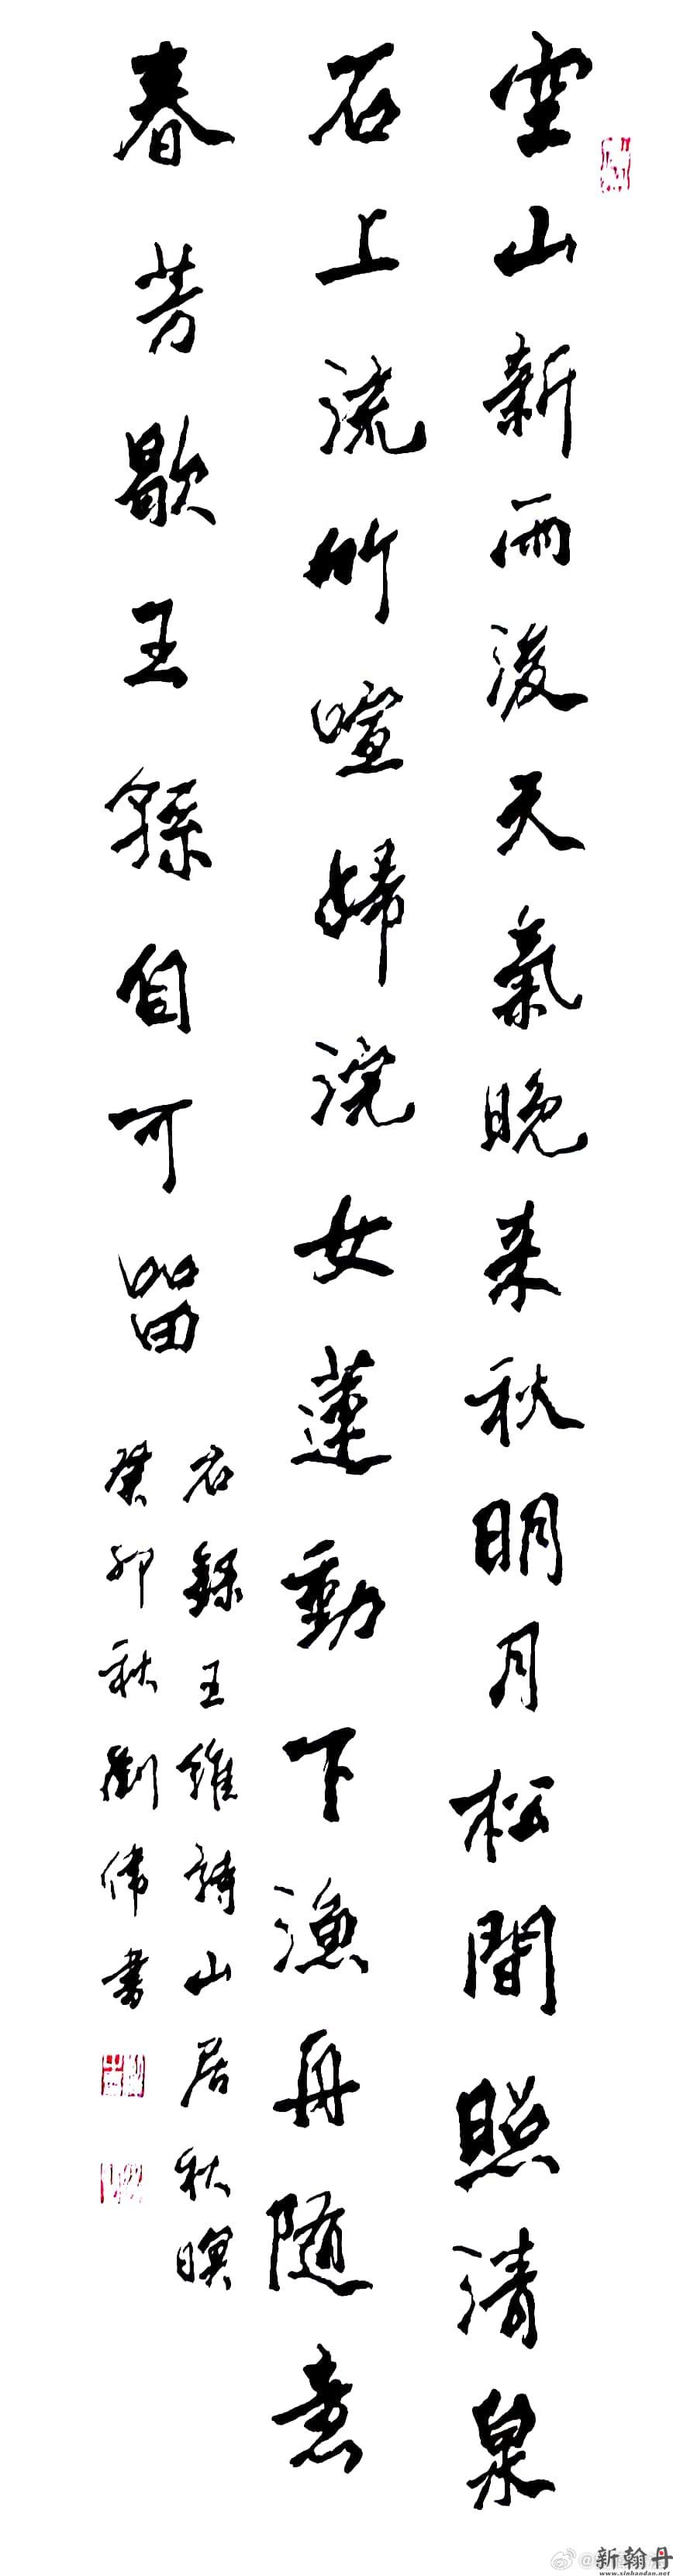 空山新雨後天氣晚来秋明月松間照清泉
石上流竹喧歸浣女蓮動下漁舟随意
春芳歇王孫自可留
右録王維詩山居秋暝
癸卯秋劉偉書
新翰丹
www.xinhandan.net